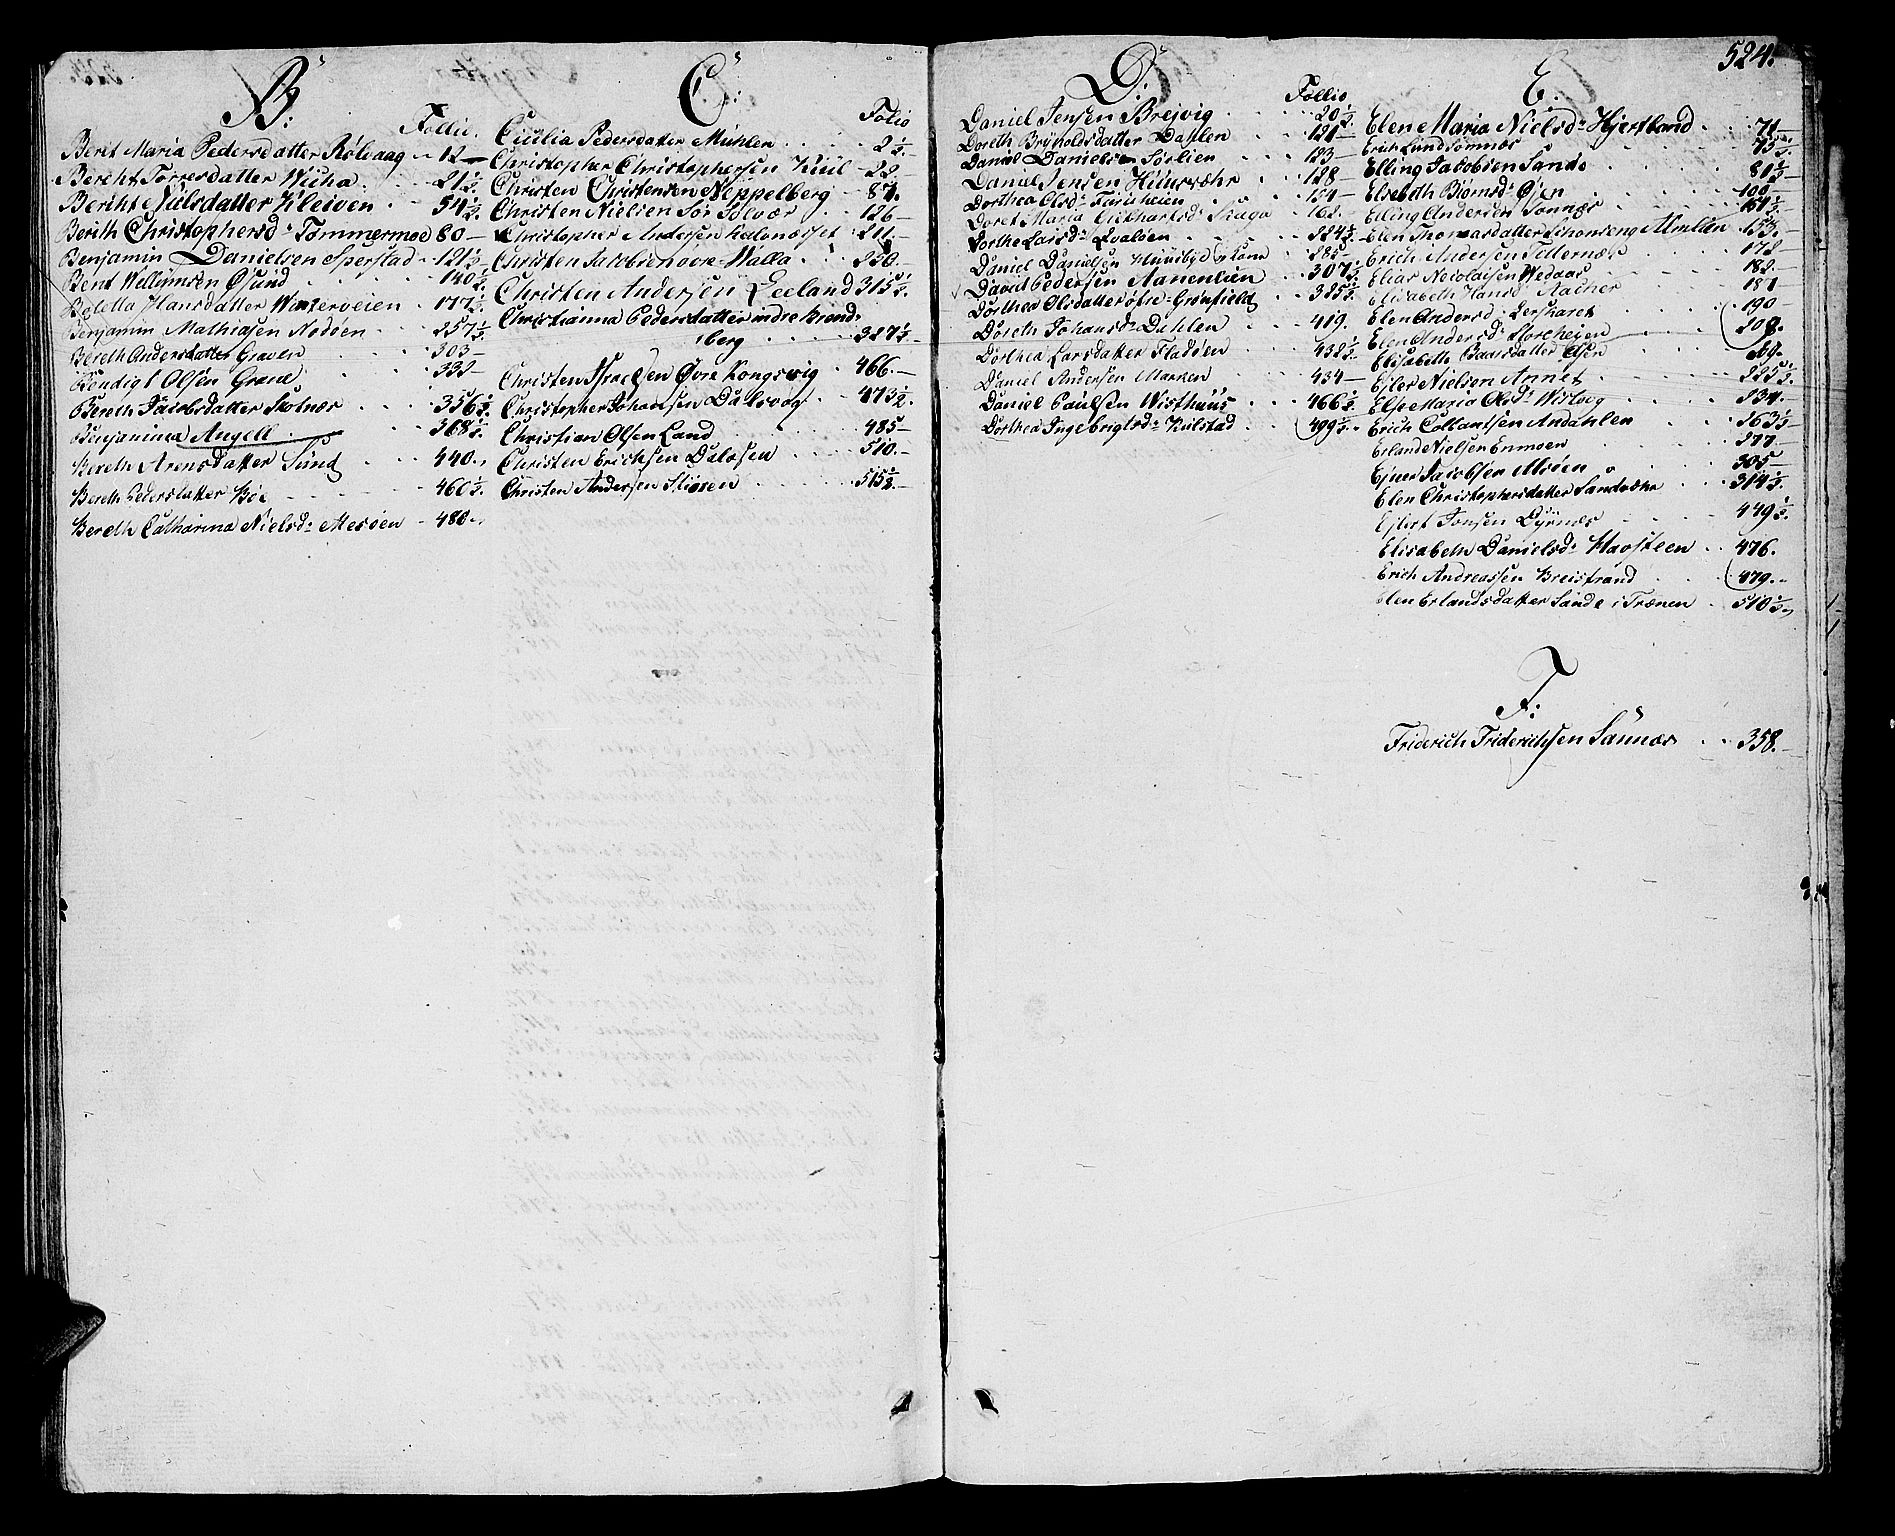 B:
Follio.
Beret Maria Pedersdatter Rølvaag - 12 -
Bereht Torresdatter Wicha . . 21 1/2.
Beriht Nielsdatter Kleiven . . 54 1/2.
Bereth Christophersd: Tømmermoe 80 -
Benjamin Danielsen Sperstad - 121 1/2
Bent Wellumsen Øsund . . 140 1/2
Beletta Hansdatter Winterveien . 177 1/2.
Benjamin Mathiasen Nodøen . . 257 1/2
Bereth Andersdatter Graven . . 303 -
Bendigt Olsen Grane . . 338 -
Bereth Jacobsdatter Skotnæs . . 356 1/2.
Benjamina Angell . . 368 1/2.
Bereth Arensdatter Sund . . 440.
Bereth Pedersdatter Bøe - - - 460 1/2.
Bereth Catharina Nielsd: Mesøen - 480.
C:
Folio
Cicilia Pedersdatter Mühlen . . 2 1/2
Christopher Christophersen Kiül - 22 -
Christen Christensen Neppelberg - 87.
Christen Nielsen Sør Solvær . . 126 -
Christopher Andersen Kalvnæsset . 211 -
Christen Jacobsen øvre Walla . . 250 -
Christen Andersen Leeland 315 1/2.
Christianna Pedersdatter indre Brend-
berg . . . 327 1/2
Christen Israelsen Øvre Kongsvig . 466. -
Christopher Johansen Dalsvog . . 473 1/2
Christian Olsen Land . . 485 -
Christen Erichsen Dalosen . . 510. -
Christen Andersen Stienen . . 515 1/2. -
524.
D:
Follio
Daniel Jensen Brejvig . . 20 1/2.
Doreth Brynholdsdatter Dahlen . . 121 -
Daniel Danielsen Sørlien . . 123 -
Daniel Jensen Huusvæhr . . 128 -
Dorthea Olsd: Farsheien . . 134 -
Doret Maria Giebhartsd: Skaga . . 162.
Dorthe Larsd: Qvaløen . . 224 1/2.
Daniel Danielsen Huusbye . . 285 -
David Pedersen Aanenlien . . 307 1/2.
Dorthea Olsdatter øfre-Grønfield . . 325 1/2.
Doreth Johansd: Dahlen . . 419.
Dorthea Larsdatter Fladøen . . 432 1/2
Daniel Andersen Marken . . 454 -
Daniel Paulsen Wisthuus . . 466 1/2
Dorthea Ingebrigtsd: Kulstad . . 499 1/2.
E:
Elen Maria Nielsd: Hjertland . . 71
Erich Lund Sømnæs . . 75 1/2.
Elling Jacobsen Sande . . 81 1/2
Elsebeth Biørnsd: Øien . . 100 -
Elling Andersen Tonnæs . . 151 1/2.
Elen Thomasdatter Schonseng Almlien . 173. -
Erich Andersen Tilternæs . . 178
Elias Nicolaisen Wedaas . . 182. -
Elisabeth Hansd: Aacher . . 187
Elen Andersd: Lershared . . 190 -
Elen Andersd: Storheien . . 208.
Elisabeth Baarsdatter Olsen
Ejler Nielsen Annet . . 225 1/2.
Else Maria Olsd: Wistvog . . 237. -
Erich Collantsen Andahlen . . 263 1/2
Erland Nielsen Enmoen . . 277 -
Ejner Jacobsen Mosøen . . 305 -
Elen Christophersdatter Sandvæhr . . 314 1/2.
Ejlert Jonsen Dyrnæs . . 449 1/2.
Elisabeth Danielsd: Haosteen . . 476.
Erich Andreassen Breistrand . . 479. -
Elen Erlandsdatter Sande i Trænen . 510 1/2.
F:
Friderich Friderichsen Sannæs . . 358. -